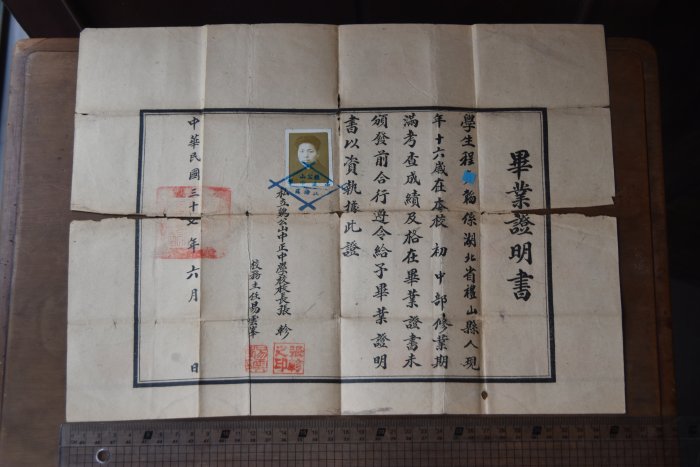 畢業證明書
學生程 翁係湖北省禮山縣人現
年十六歲在本校 初 中部修業期
滿考查成績及格在畢業證書未
頒發前合行遵令給予畢業證明
書以資執據此證
私立鷄公山中正中學校校長張 軫
校務主任易雲峯
張軫之印
中華民國三十七年六月 日